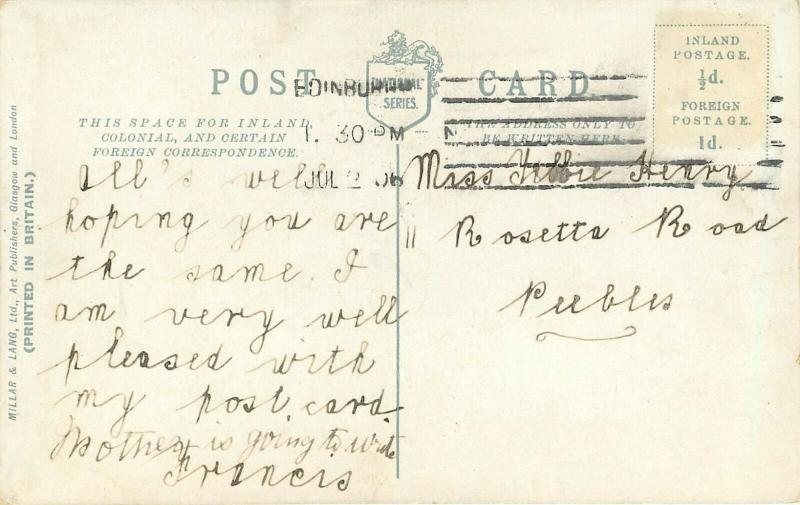 POST CARD
"NATIONAL"
SERIES.
THIS SPACE FOR INLAND,
COLONIAL, AND CERTAIN
FOREIGN CORRESPONDENCE.
THE ADDRESS ONLY TO
BE WRITTEN HERE.
INLAND
POSTAGE.
½d.
FOREIGN
POSTAGE.
1d.
EDINBURGH
1. 30 PM
JUL 2 06
MILLAR & LANG, Ltd., Art Publishers, Glasgow and London
(PRINTED IN BRITAIN.)
All's well
hoping you are
the same. I
am very well
pleased with
my post card.
Mother is going to write
Francis
Miss Henry
11 Rosetta Road
Peebles